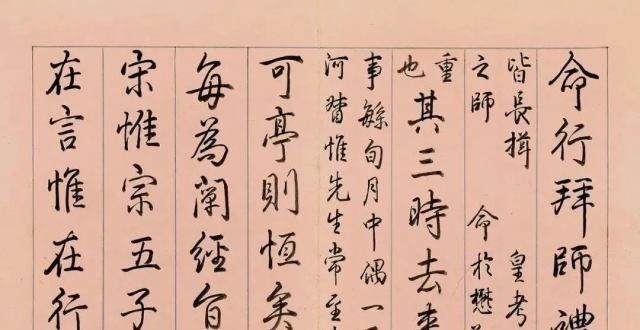 命行拜師禮
皆長揖 皇考
之師 命於懋
重
也
其三時去來
事餘旬月中偶一
河督惟先生常至
可亭則恆矣
每為闡經旨
宋惟宗五子
在言惟在行